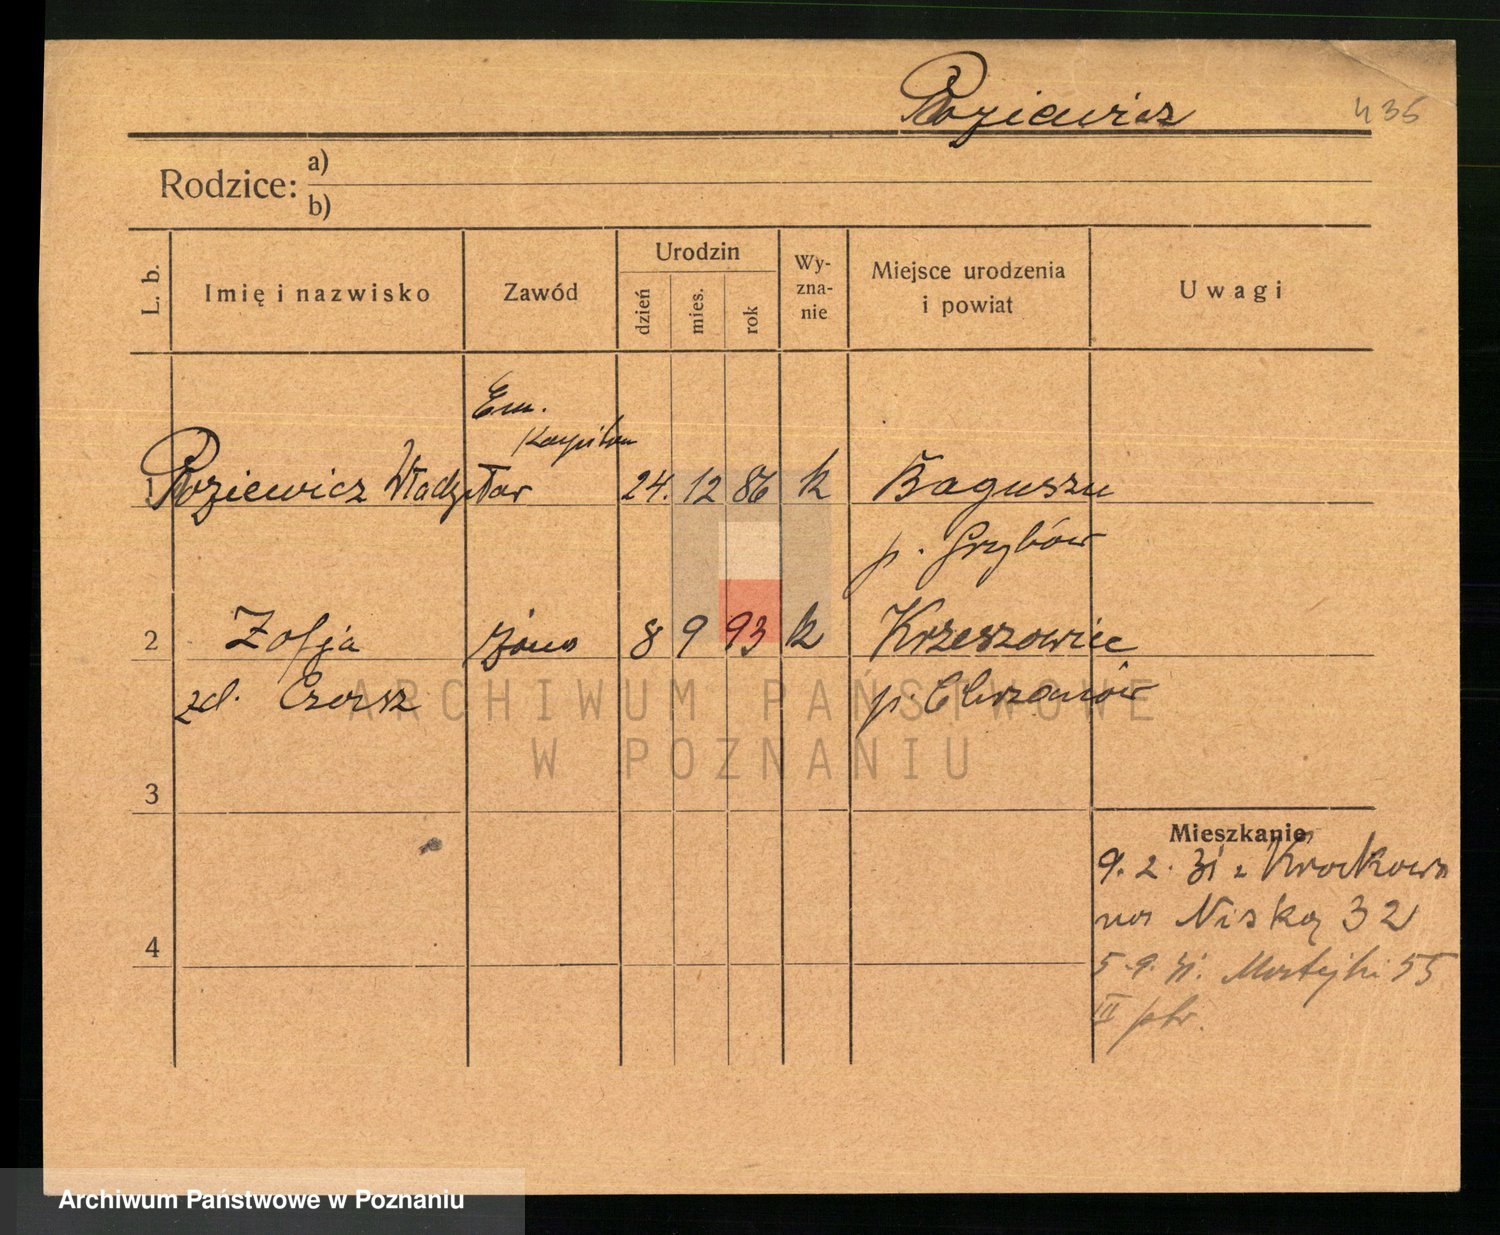 Roziewicz 435
Rodzice: a)
b)
L. b. Imię i nazwisko Zawód Urodzin dzień mies. rok Wy-zna-nie Miejsce urodzenia i powiat Uwagi
Em. Kapitan
1 Roziewicz Władysław 24. 12 86 k Bogusza
p. Grybów
2 Zofja żona 8 9 93 k Krzeszowice
zd. Czersz p. Chrzanów
3
Mieszkanie
9. 2. 31 z Krakowa
na Niską 32
4
5.9.31. Matejki 55
III ptr.
ARCHIWUM PAŃSTWOWE
W POZNANIU
Archiwum Państwowe w Poznaniu